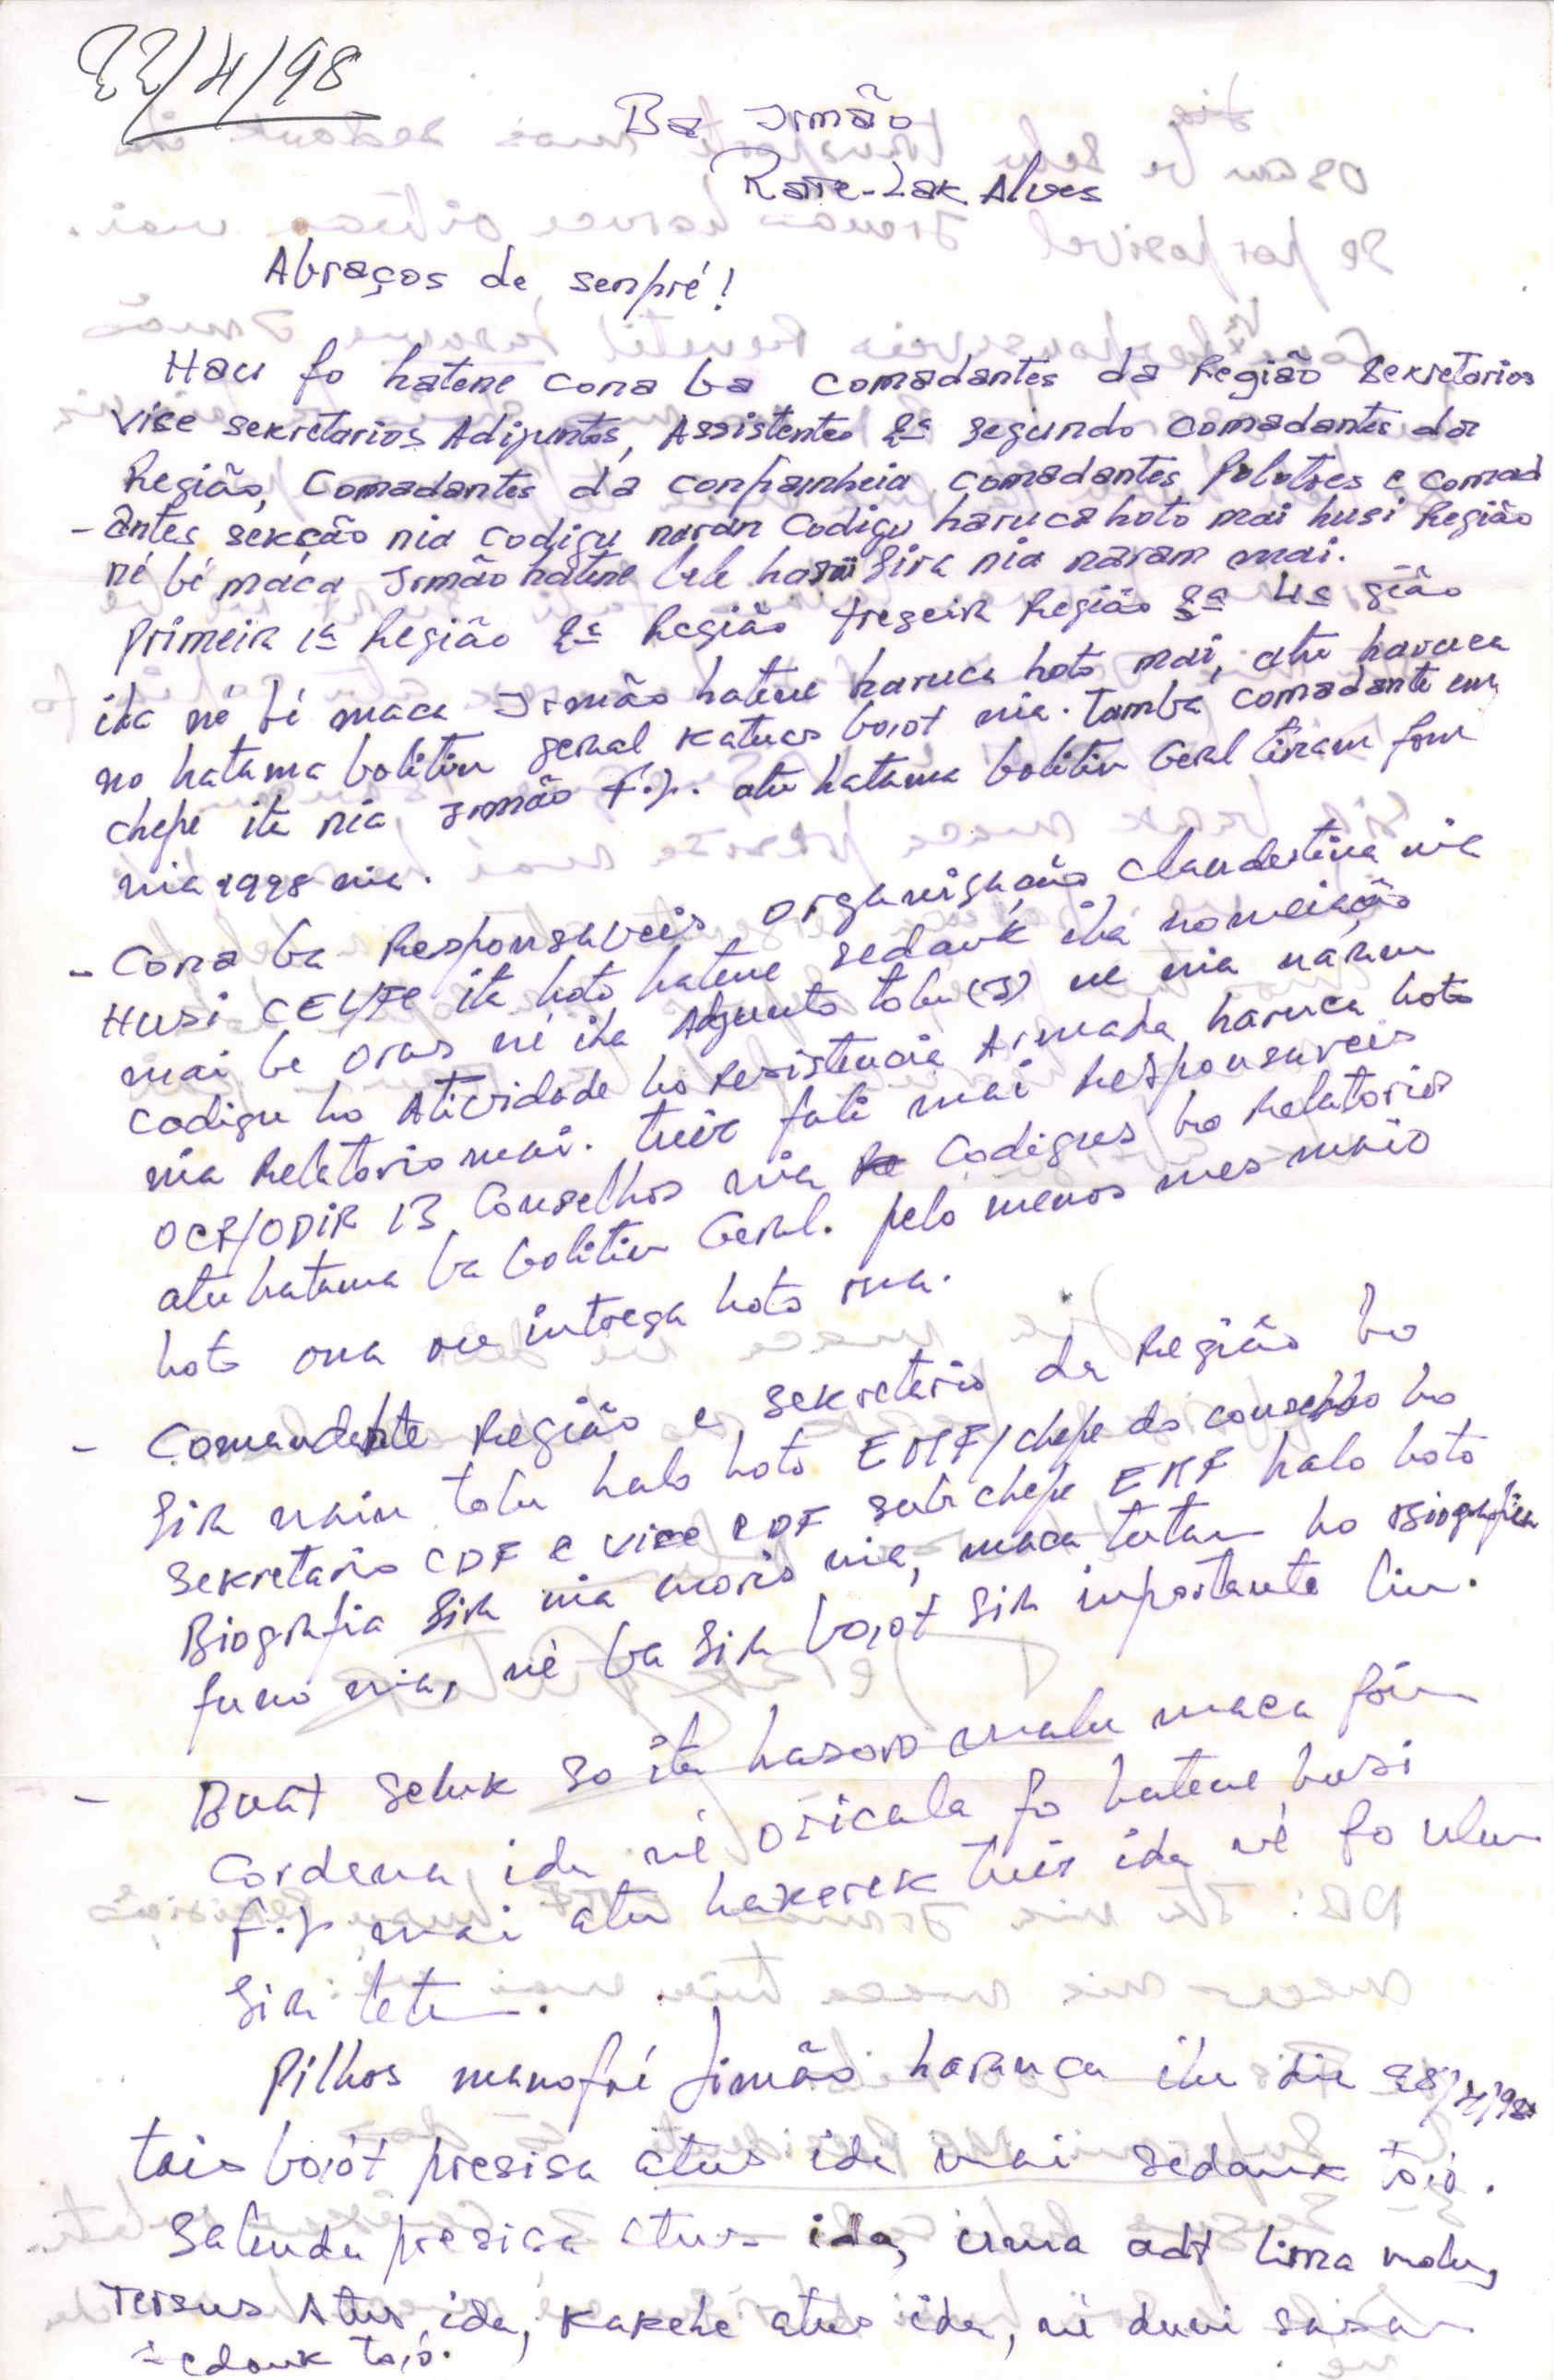 22/4/98
Ba Irmão
Rate-Lak Alves
Abraços de senpré!
Hau fo hatene cona ba comadantes da Região Sekretarios
Vise sekretarios Adijuntos, Assistentes 2ª segundo comadantes da
Região, Comadantes da conpamheia, comadantes Pelotoes e comad
- antes seksão nia codigu naran Codigu haruca hoto mai husi Região
né bé maca Irmão hatene bele Sira nia naram mai.
Primeira 1ª Região 2ª Região tregeira Região 3ª 4ª gião
iha né bé maca Irmão hatene haruca hoto mai, atu haruca
no hatama bolitin geral katuas bo,ot nia. Tamba comadante em
chefe ita nia Irmão F.J. atu hatama bolitin Geral tinam fom
nia 1998 nia.
- Cona ba Responsaveis organisação clandestina nia
Husi CEL/FC ita hoto hatene sedauk iha nomeiação
mai be oras né iha Adjunto tolu (3) ne nia naram
codigu ho Atividade ho Resistencia Armada haruca hoto
nia Relatorio mai. tuir fali mai Responsaveis
OCR/ODIR 13 Conselhos nia Codigues ho Relatorios
atu hatama ba bolitin Geral. pelo menos mes maio
hoto ona intrega hoto ona.
- Comandante Região e sekretario da Região ho
Sira nain tolu halo hoto EMF/chefe do conselho ho
Sekretario CDF e vice CDF sub chefe EMF halo hoto
Biografia Sira nia moris nia, maca tutan ho Biografia
funo nia, né ba Sira bo,ot sira inportante liu.
- Buat seluk so ita hasoro malu maca foin
Cordena ida né oricala fo hatene husi
F.J mai atu hakerek tuir ida né fo ulun
Sira tetu.
Pilhos manofoé Jimão haruca iha dia 28/4/98
tais bo,ot presisa atus ida mai sedauk to,o.
Salenda presisa atus ida, uma adt lima nolu,
Tersus Atus ida, kakehe atus ida, né duni sasan
sedauk to,o.